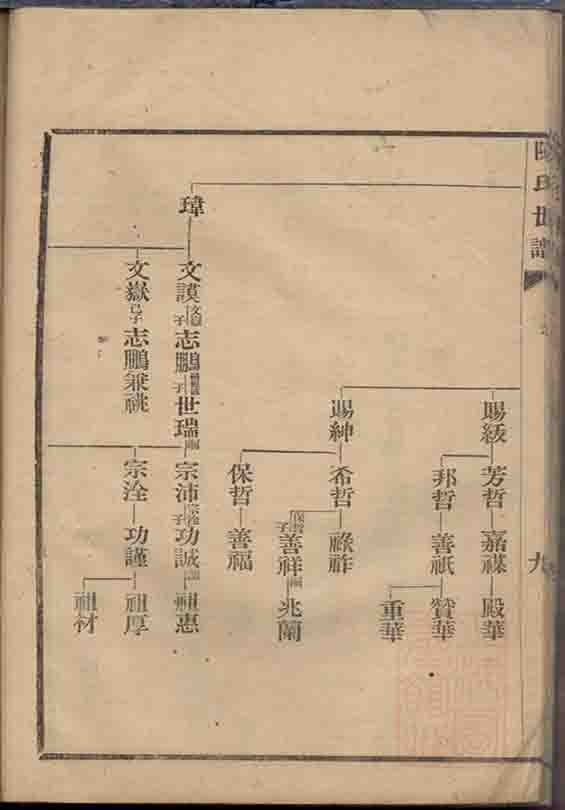 氏世譜
九
賜紱 芳哲 嘉禖 殿華
邦哲 善祇 贊華
重華
賜紳 希哲 祿祚
保哲子 善祥 兆蘭
保哲 善福
瑋 文謨 志鵬 子 世瑞 宗沛 子 功誠 祖惠
文嶽 己子 志鵬兼祧 宗洤 功謹 祖厚
祖材